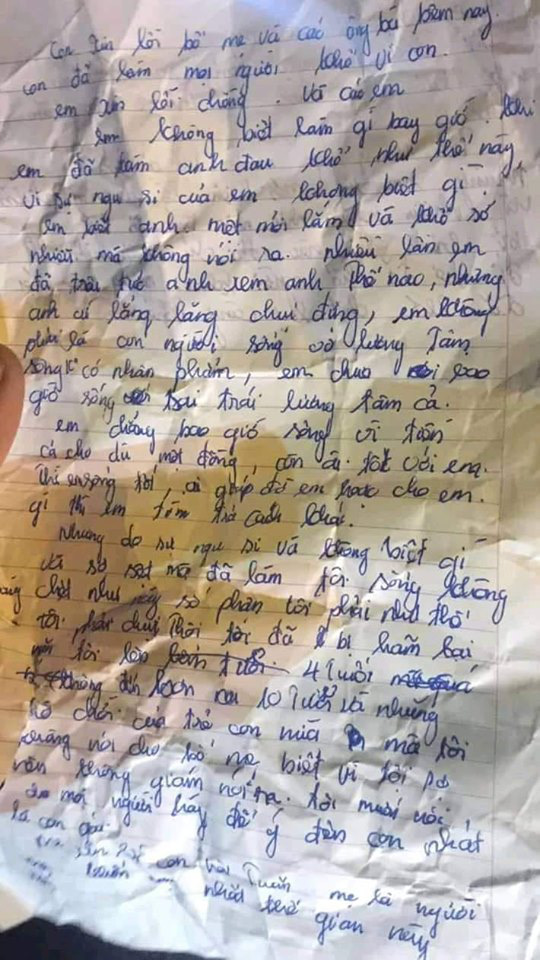 Con xin lỗi bố mẹ và các ông bà hôm nay.
con đã làm mọi người khổ vì con.
em xin lỗi chồng. và các em
em không biết làm gì bay giờ. khi
em đã làm anh đau khổ như thế này,
vì sự ngu si của em. không biết gì
em biết anh mệt mỏi lắm và khổ sở
nhiều mà không nói ra. nhiều lần em
đã trêu tức anh xem anh thế nào, nhưng
anh cứ lẳng lặng chịu đựng, em không
phải là con người sống vô lương Tâm
sống có nhân phẩm, em chưa bao
giờ sống trái lương tâm cả.
em chẳng bao giờ sống vì tiền
cả cho dù một đồng, còn ai tốt với em.
thì em sống tốt, ai giúp đỡ em hoặc cho em.
gì thì em tìm trả cách khác.
Nhưng do sự ngu si và không biết gì
và sợ sệt mà đã làm tôi sống không
chết như này số phận tôi phải như thế
tôi phải chịu thôi tôi đã bị hãm hại
tôi lên 4 Tuổi
không đến hơn 10 Tuổi và những
trò chơi của trẻ con nữa mà tôi
không nói cho bố mẹ biết vì tôi
vẫn không giám nói ra. tôi muốn nói,
mọi người hãy để ý đến con nhất
là con gái.
xin con mẹ là người
nhất thế gian này